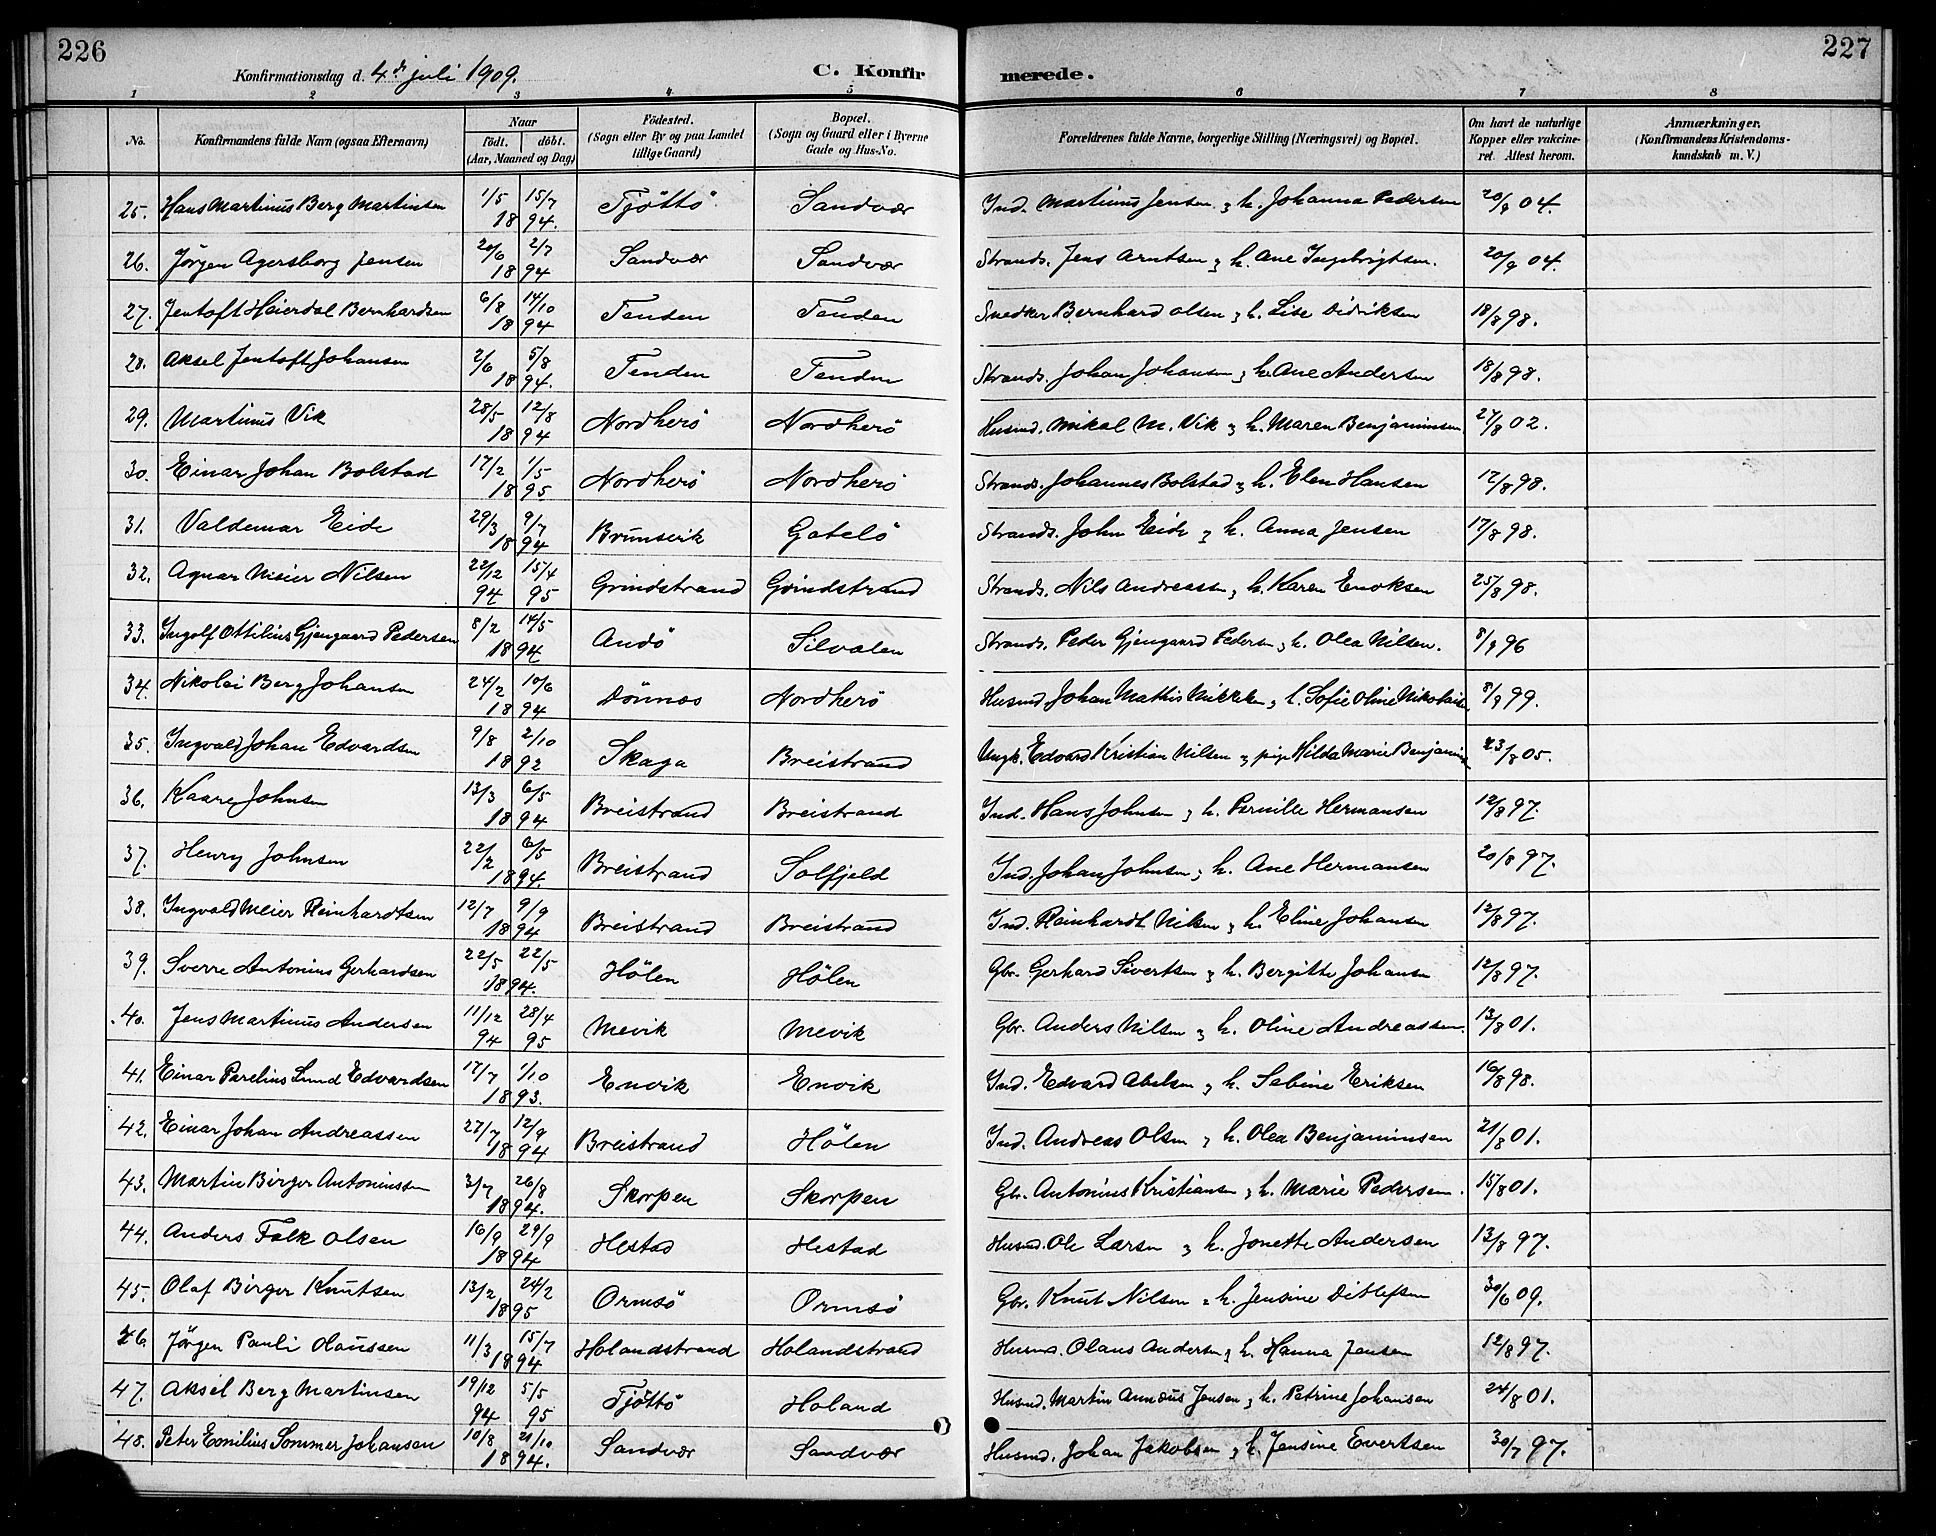 226
227
Konfirmationsdag d. 4de juli 1909.
C. Konfirmerede.
1 2 3 4 5 6 7 8
No.
Konfirmandens fulde Navn (ogsaa Efternavn)
Naar
födt. döbt.
(Aar, Maaned og Dag)
Födested.
(Sogn eller By og paa Landet
tillige Gaard)
Bopæl.
(Sogn og Gaard eller i Byerne
Gade og Hus-No.
Forældrenes fulde Navne, borgerlige Stilling (Næringsvei) og Bopæl.
Om havt de naturlige
Kopper eller vakcine-
ret. Attest herom.
Anmærkninger.
(Konfirmandens Kristendoms-
kundskab m. V.)
25. Hans Martinus Berg Martinsen 1/5 15/7 1894. Tjöttö Sandvær Ind. Martinus Jensen & h. Johanna Pedersen 20/9 04.
26. Jörgen Agersborg Jensen 20/6 2/7 1894 Sandvær Sandvær Strands. Jens Arntsen & h. Ane Ingebrigtsen. 20/9 04.
27. Jentoft Heierdal Bernhardsen 6/8 14/10 1894 Tenden Tenden Snedker Bernhard Olsen & h. Lise Didriksen 18/8 98.
28. Aksel Jentoft Johansen 2/6 5/8 1894. Tenden Tenden Strands. Johan Johansen & h. Ane Andersen 18/8 98.
29. Martinus Vik 28/5 12/8 1894 Nordherö Nordherö Husmd. Mikal M. Vik & h. Maren Benjaminsen 27/8 02.
30. Einar Johan Bolstad 17/2 1/5 1895 Nordherö Nordherö Strands. Johannes Bolstad & h. Elen Hansen 17/8 98.
31. Valdemar Eide 29/3 9/7 1894 Brunsvik Gatelö Strands. John Eide & h. Anna Jensen 17/8 98.
32. Agnar Meier Nilsen 22/12 94 15/4 95 Grindstrand Grindstrand Strands. Nils Andreassen & h. Karen Enoksen 25/8 98.
33. Ingolf Ottilius Gjengaard Pedersen 8/2 14/5 1894 Andö Silvalen Strands. Peder Gjengaard Pedersen & h. Olea Nilsen. 8/9 96
34. Nikolai Berg Johansen 24/2 10/6 1894 Dönnes Nordherö Husmd. Johan Mathis Mikkelsen & h. Sofie Oline Nikolaisen 8/9 99.
35. Ingvald Johan Edvardsen 9/8 2/10 1892 Skaga Breistrand Ungk. Edvard Kristian Nilsen & pige Hilda Marie Benjaminsen 23/8 05.
36. Kaare Johnsen 13/3 6/5 1894 Breistrand Breistrand Ind. Hans Johnsen & h. Pernille Hermansen 12/8 97.
37. Henry Johnsen 22/2 6/5 1894. Breistrand Solfjeld Ind. Johan Johnsen & h. Ane Hermansen 20/8 97.
38. Ingvald Meier Reinhardtsen 12/7 9/9 1894 Breistrand Breistrand Ind. Reinhardt Nilsen & h. Eline Johansen 12/8 97.
39. Sverre Antonius Gerhardsen 22/5 22/5 1894. Hölen Hölen Gbr. Gerhard Sivertsen & h. Bergitte Johansen 12/8 97.
40. Jens Martinus Andersen 11/12 94 28/4 95 Mevik Mevik Gbr. Anders Nilsen & h. Oline Andreassen. 13/8 01.
41. Einar Parelius Lund Edvardsen 17/7 1/10 1893. Envik Envik Ind. Edvard Abelsen & h. Sabine Eriksen 16/8 98.
42. Einar Johan Andreassen 27/7 12/9 1894 Breistrand Hölen Ind. Andreas Olsen & h. Olea Benjaminsen 21/8 01.
43. Martin Birger Antoniussen 3/7 26/8 1894. Skorpen Skorpen Gbr. Antonius Kristiansen & h. Marie Pedersen. 15/8 01.
44. Anders Falk Olsen 16/9 29/9 1894 Hestad Hestad Husmd. Ole Larsen & h. Jonette Andersen 13/8 97.
45. Olaf Birger Knutsen 13/2 24/2 1895 Ormsö Ormsö Gbr. Knut Nilsen & h. Jensine Ditlefsen 30/6 09.
46. Jörgen Pauli Olaussen 11/3 15/7 1894 Holandstrand Holandstrand Husmd. Olaus Andersen & h. Hanna Jensen 12/8 97.
47. Aksel Berg Martinsen 19/12 94 5/5 95 Tjöttö Holand Husmd. Martin Annæus Jensen & h. Petrine Johansen 24/8 01.
48. Peter Emilius Sommer Johansen 10/8 21/10 1894. Sandvær Sandvær Husmd. Johan Jakobsen & h. Jensine Evertsen 30/7 97.